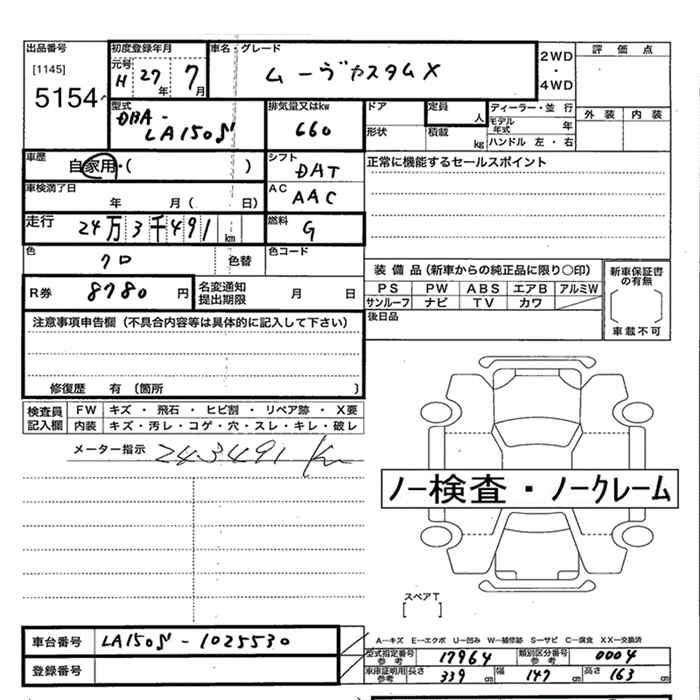 出品番号 初度登録年月 車名・グレード 2WD・4WD 評価点
[1145] 元号 H 27年 7月 ムーヴカスタムX
5154 外装 内装
型式 DBA-LA150S 排気量又はkw 660 ドア 定員 人 ディーラー・並行
形状 積載 kg モデル年式 年
ハンドル 左・右
車歴 自家用・( ) シフト DAT 正常に機能するセールスポイント
車検満了日 年 月( 日) AC AAC
走行 24万3千491km 燃料 G
色 クロ 色替 色コード
装備品(新車からの純正品に限り○印) 新車保証書の有無
PS PW ABS エアB アルミW
サンルーフ ナビ TV カワ
〔 〕
車載不可
R券 8780円 名変通知提出期限 月 日
後日品
注意事項申告欄(不具合内容等は具体的に記入して下さい)
修復歴 有〔箇所 〕
検査員記入欄 FW キズ・飛石・ヒビ割・リペア跡・X要
内装 キズ・汚レ・コゲ・穴・スレ・キレ・破レ
メーター指示 243491km
ノー検査・ノークレーム
スペアT
[ ]
車台番号 LA150S-1025530
登録番号
A―キズ E―エクボ U―凹み W―補修跡 S―サビ C―腐食 XX―交換済
型式指定番号参考 17964 類別区分番号参考 0004
車庫証明用参考 長さ 339cm 幅 147cm 高さ 163cm